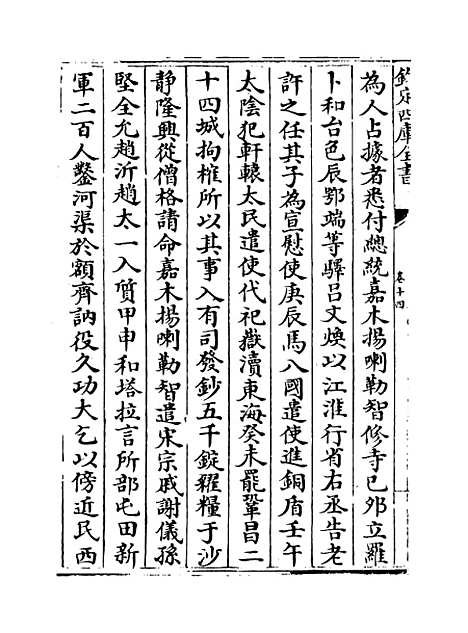 欽定四庫全書
卷十四
為人占據者悉付總統嘉木揚喇勒智修寺己夘立羅
卜和台色辰鄂端等驛吕文煥以江淮行省右丞告老
許之任其子為宣慰使庚辰馬八國遣使進銅盾壬午
太陰犯軒轅太民遣使代祀嶽瀆東海癸未罷鞏昌二
十四城拘榷所以其事入有司發鈔五千錠糴糧于沙
静隆興從僧格請命嘉木揚喇勒智遣宋宗戚謝儀孫
堅全允趙沂趙太一入質甲申和塔拉言所部屯田新
軍二百人鑿河渠於額齊訥役久功大乞以傍近民西